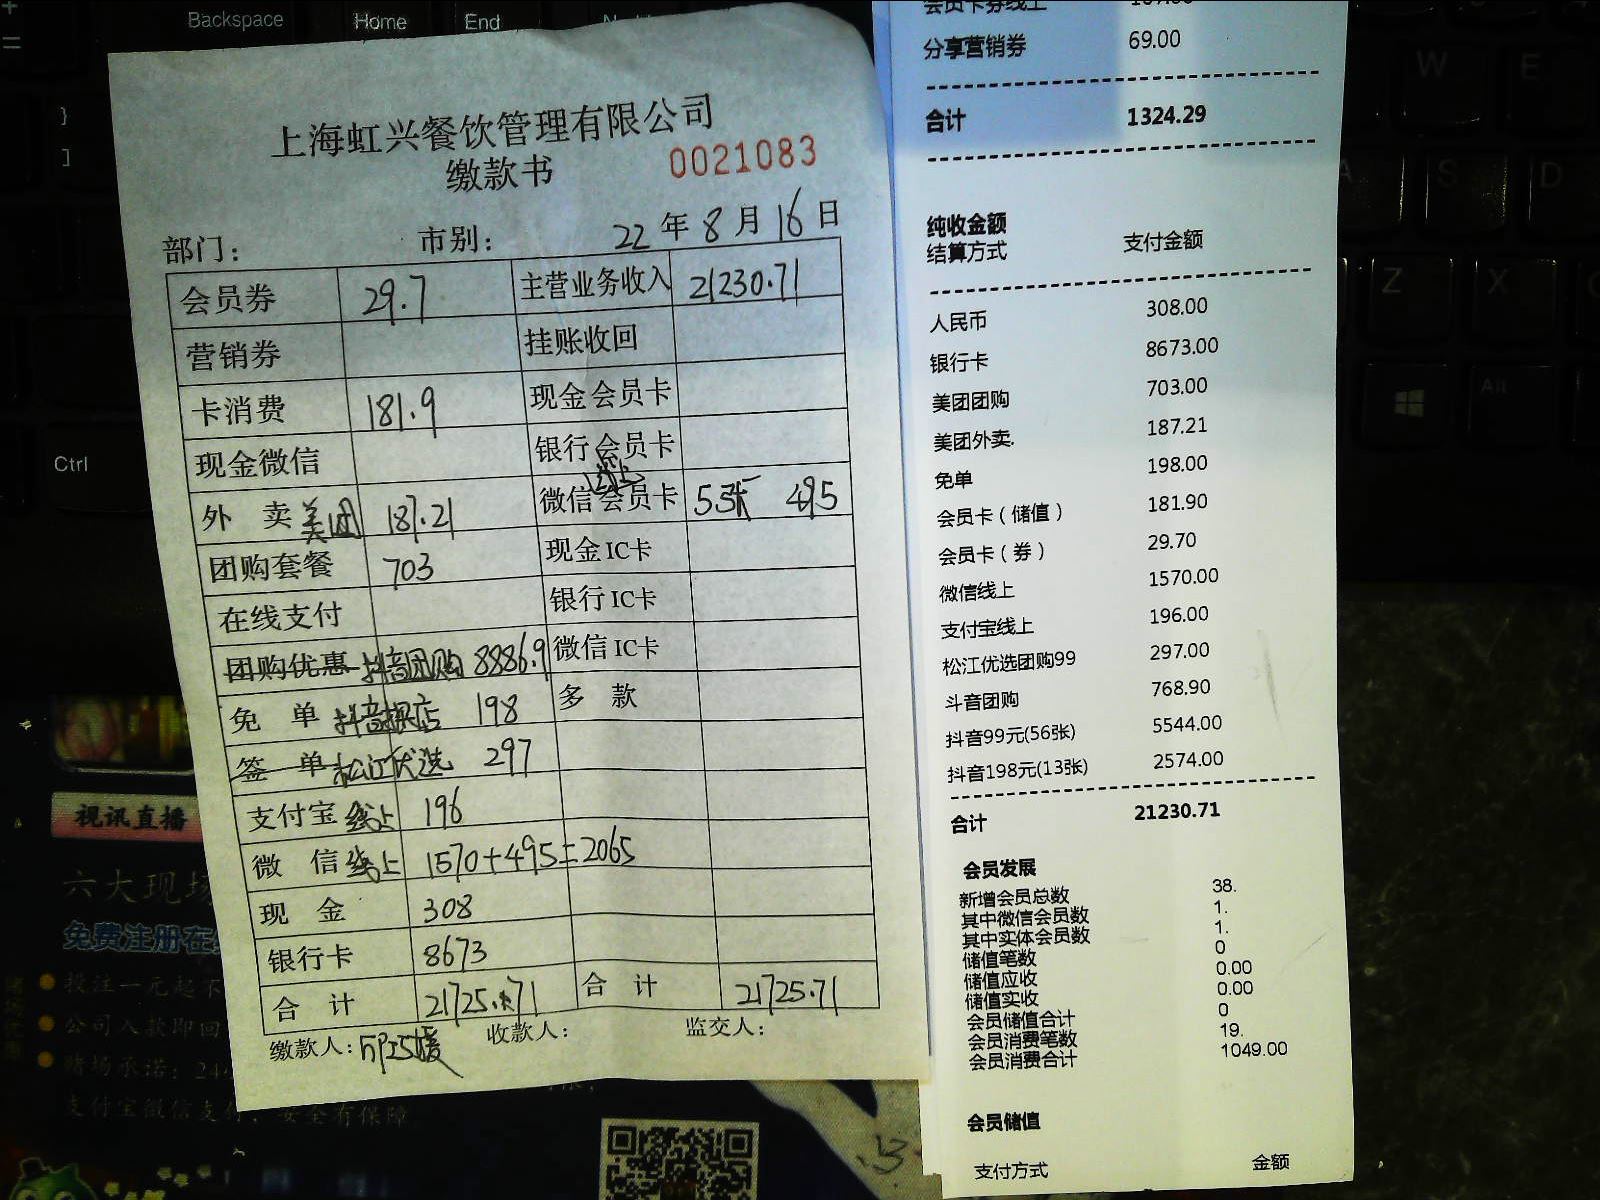 Backspace
Home
End
Ctrl
上海虹兴餐饮管理有限公司
缴款书 0021083
部门： 市别： 22 年 8 月 16 日
会员券 29.7 主营业务收入 21230.71
营销券 挂账收回
卡消费 181.9 现金会员卡
现金微信 银行会员卡
外 卖 美团 187.21 线上 微信会员卡 5张 495
团购套餐 703 现金IC卡
在线支付 银行IC卡
团购优惠 抖音团购 8886.9 微信IC卡
免 单 抖音探店 198 多 款
签 单 松江优选 297
支付宝 线上 196
微 信 线上 1570+495=2065
现 金 308
银行卡 8673
合 计 21725.71 合 计 21725.71
缴款人： 收款人： 监交人：
会员卡券线上
分享营销券 69.00
合计 1324.29
纯收金额
结算方式 支付金额
人民币 308.00
银行卡 8673.00
美团团购 703.00
美团外卖. 187.21
免单 198.00
会员卡（储值） 181.90
会员卡（券） 29.70
微信线上 1570.00
支付宝线上 196.00
松江优选团购99 297.00
斗音团购 768.90
抖音99元(56张) 5544.00
抖音198元(13张) 2574.00
合计 21230.71
会员发展
新增会员总数 38.
其中微信会员数 1.
其中实体会员数 1.
储值笔数 0
储值应收 0.00
储值实收 0.00
会员储值合计 0
会员消费笔数 19.
会员消费合计 1049.00
会员储值
支付方式 金额
W E
A S D
Z X
Alt
视讯直播
六大现场
免费注册在
投注一元起不
公司入款即回
赌场承诺：24
支付宝微信支付，安全有保障